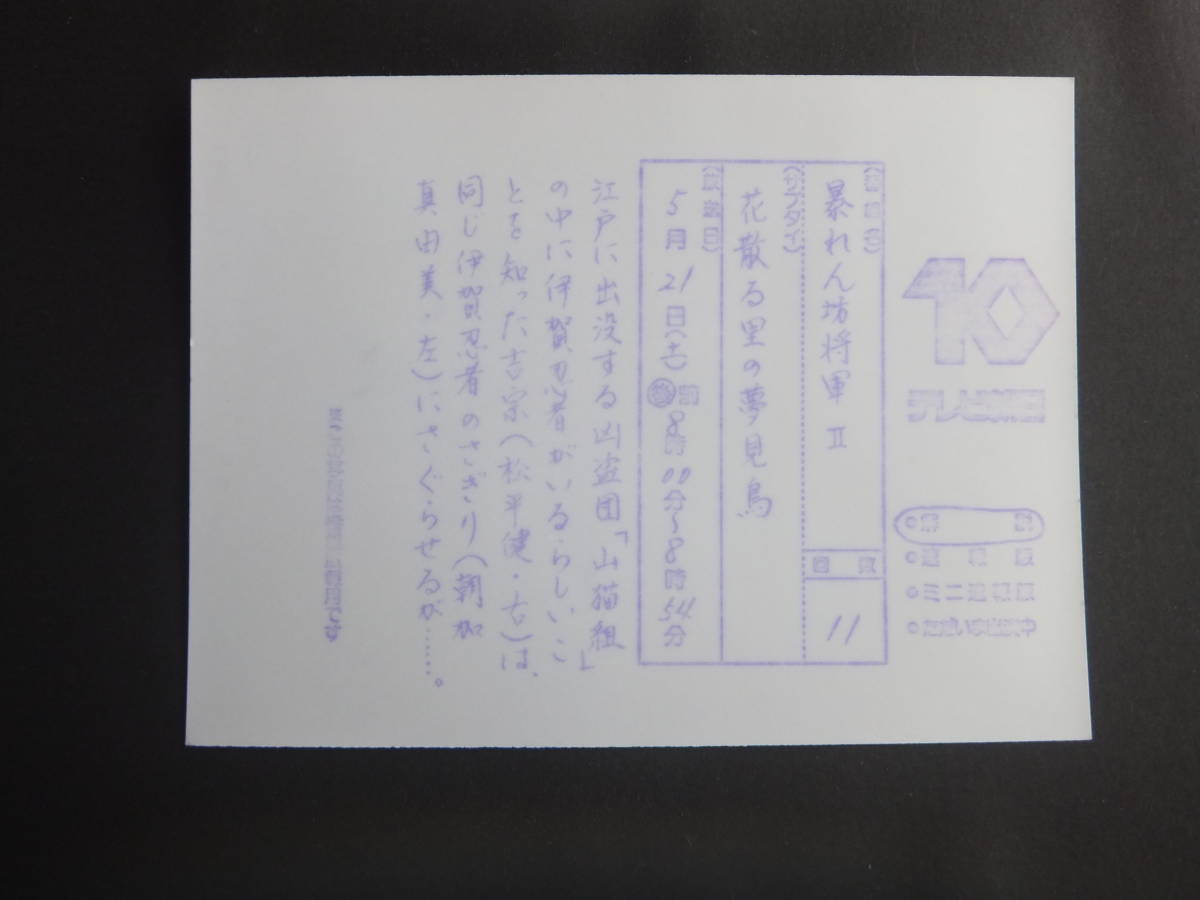 10
テレビ朝日
(番組名)
暴れん坊将軍 Ⅱ
回数
11
(サブタイ)
花散る里の夢見鳥
(放送日)
5月21日(土) 8時00分〜8時54分
江戸に出没する凶盗団「山猫組」
の中に伊賀忍者がいるらしいこ
とを知った吉宗(松平健・右)は、
同じ伊賀忍者のさぎり(朝加
真由美・左)にさぐらせるが……。